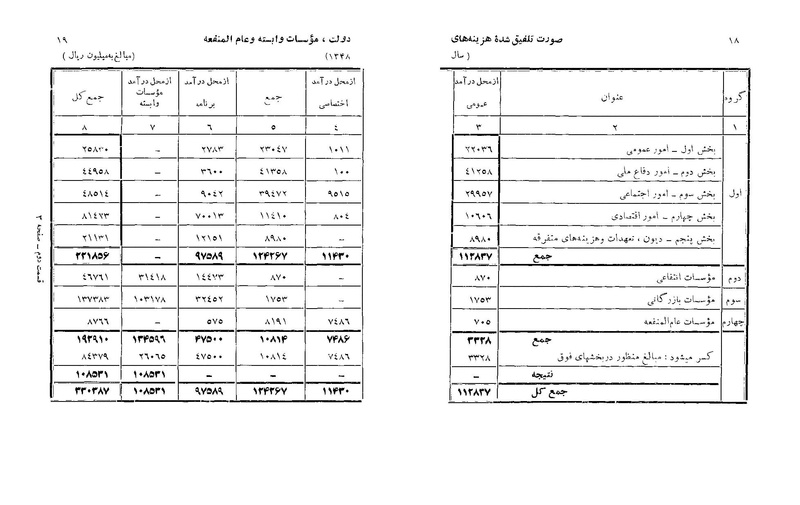 ۱۸
صورت تلفیق شدهٔ هزینه‌های
(سال
گروه عنوان ازمحل درآمد عمومی
۱ ۲ ۳
اول
بخش اول ـ امور عمومی ۲۲۰۳۶
بخش دوم ـ امور دفاع ملی ۴۱۲۵۸
بخش سوم ـ امور اجتماعی ۲۹۹۵۷
بخش چهارم ـ امور اقتصادی ۱۰۶۰۶
بخش پنجم ـ دیون ، تعهدات وهزینه‌های متفرقه ۸۹۸۰
جمع ۱۱۲۸۳۷
دوم مؤسسات انتفاعی ۸۷۰
سوم مؤسسات بازرگانی ۱۷۵۳
چهارم مؤسسات عام‌المنفعه ۷۰۵
جمع ۳۳۲۸
کسر میشود : مبالغ منظور دربخشهای فوق ۳۳۲۸
نتیجه –
جمع کل ۱۱۲۸۳۷
دولت ، مؤسسات وابسته وعام المنفعه
۱۹
۱۳۴۸)
(مبالغ‌به‌میلیون ریال )
ازمحل درآمد اختصاصی جمع ازمحل درآمد برنامه ازمحل درآمد مؤسسات وابسته جمع کل
۴ ۵ ۶ ۷ ۸
۱۰۱۱ ۲۳۰۴۷ ۲۷۸۳ – ۲۵۸۳۰
۱۰۰ ۴۱۳۵۸ ۳۶۰۰ – ۴۴۹۵۸
۹۵۱۵ ۳۹۴۷۲ ۹۰۴۲ – ۴۸۵۱۴
۸۰۴ ۱۱۴۱۰ ۷۰۰۱۳ – ۸۱۴۲۳
– ۸۹۸۰ ۱۲۱۵۱ – ۲۱۱۳۱
۱۱۴۳۰ ۱۲۴۲۶۷ ۹۷۵۸۹ – ۲۲۱۸۵۶
– ۸۷۰ ۱۴۴۷۳ ۳۱۴۱۸ ۴۶۷۶۱
– ۱۷۵۳ ۳۲۴۵۲ ۱۰۳۱۷۸ ۱۳۷۳۸۳
۷۴۸۶ ۸۱۹۱ ۵۷۵ – ۸۷۶۶
۷۴۸۶ ۱۰۸۱۴ ۴۷۵۰۰ ۱۳۴۵۹۶ ۱۹۲۹۱۰
۷۴۸۶ ۱۰۸۱۴ ۴۷۵۰۰ ۲۶۰۶۵ ۸۴۳۷۹
– – – ۱۰۸۵۳۱ ۱۰۸۵۳۱
۱۱۴۳۰ ۱۲۴۲۶۷ ۹۷۵۸۹ ۱۰۸۵۳۱ ۳۳۰۳۸۷
قسمت دوم ـ صفحه ۳